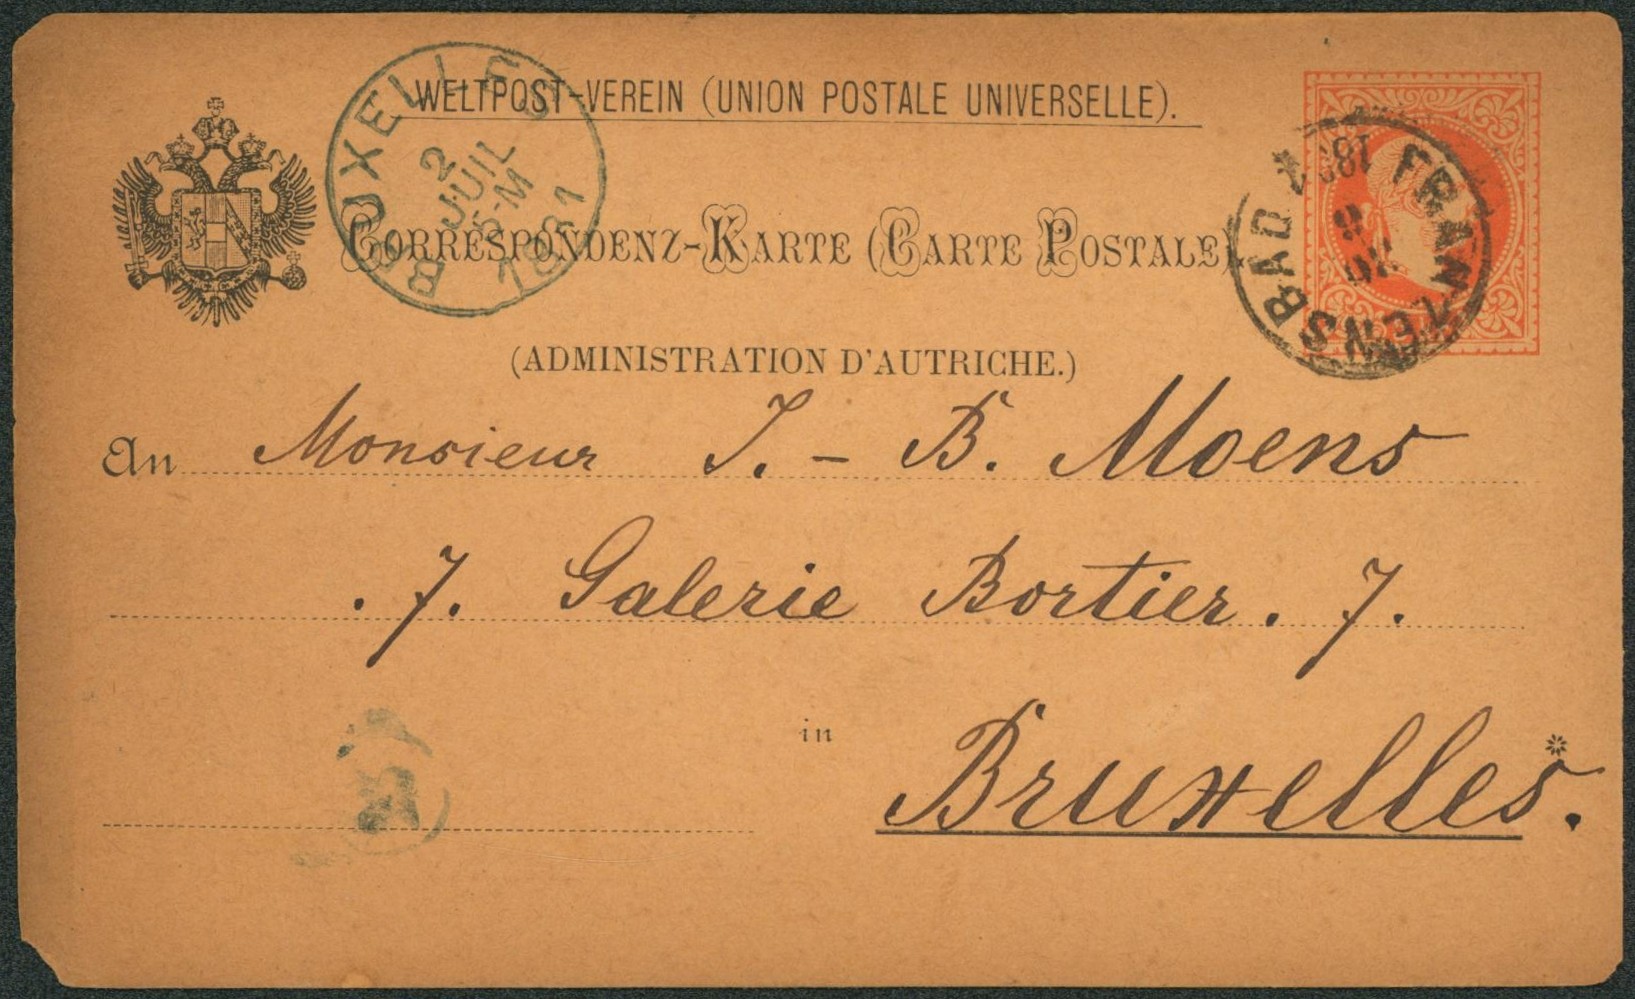 WELTPOST-VEREIN (UNION POSTALE UNIVERSELLE).
BRUXELLES
2
JUIL
5-M
1881
CORRESPONDENZ-KARTE (CARTE POSTALE)
FRANZENSBAD
(ADMINISTRATION D'AUTRICHE.)
An Monsieur J. - B. Moens
. 7. Galerie Bortier. 7.
in
Bruxelles.